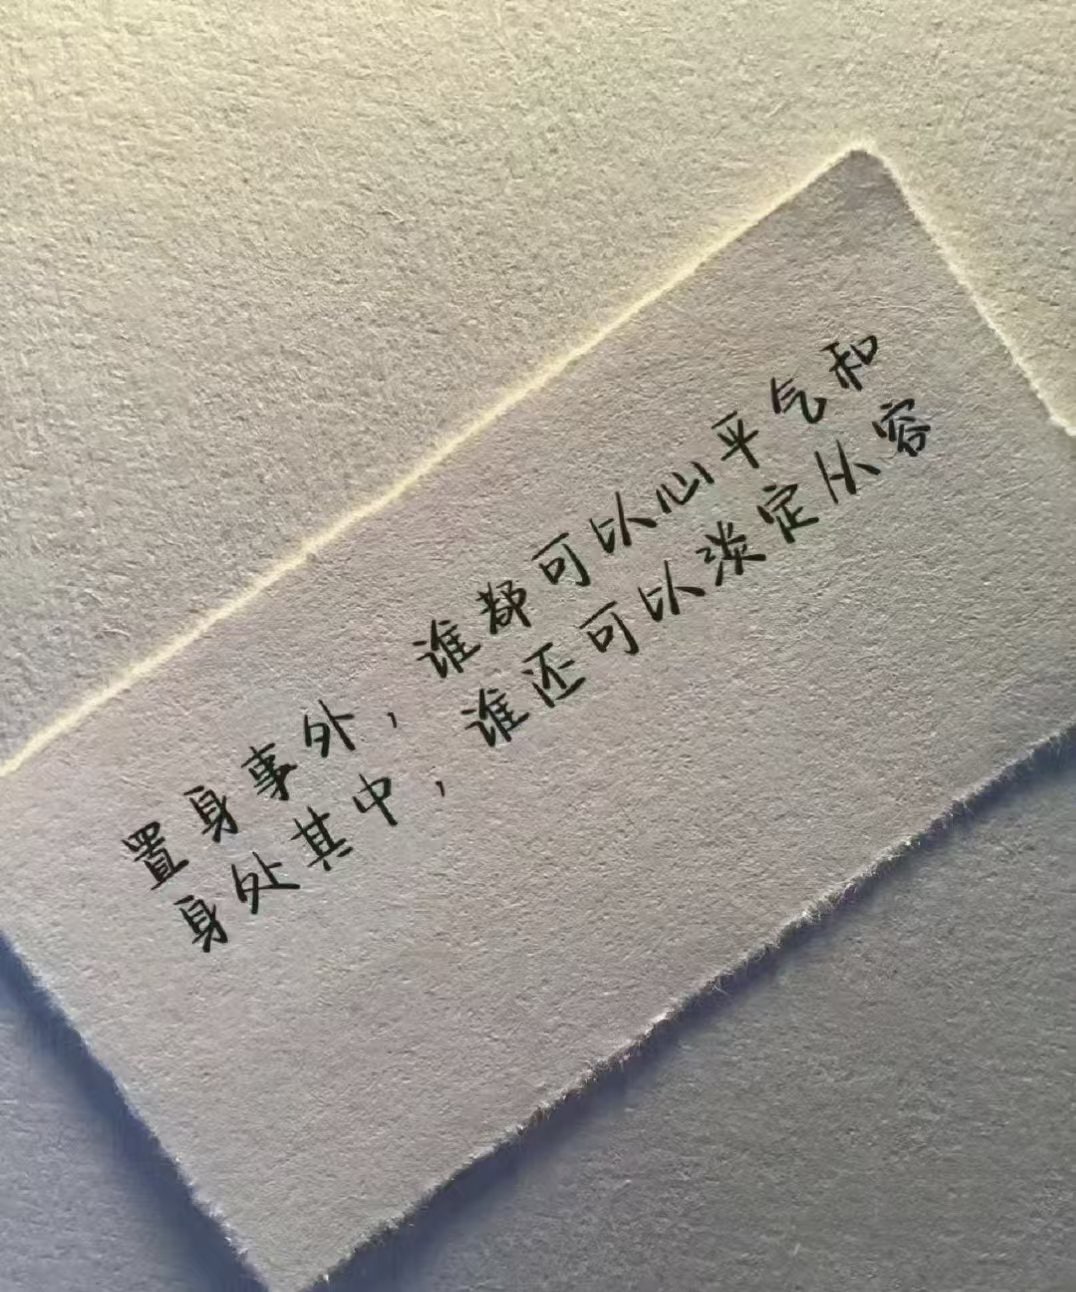 置身事外，谁都可以心平气和
身处其中，谁还可以淡定从容